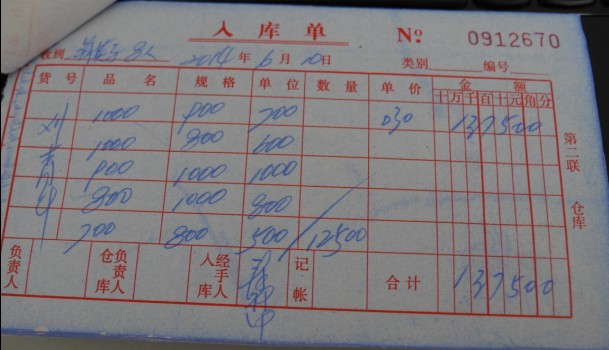 入库单 № 0912670
收到 2014年6月10日 类别 编号
货号 品名 规格 单位 数量 单价 金额
十万千百十元角分
1000 900 700 030 137500
1000 900 600
900 1000 1000
800 1000 800
700 800 500 / 12500
第二联 仓库
负责人 仓库负责人 入库经手人 记帐 合计 137500